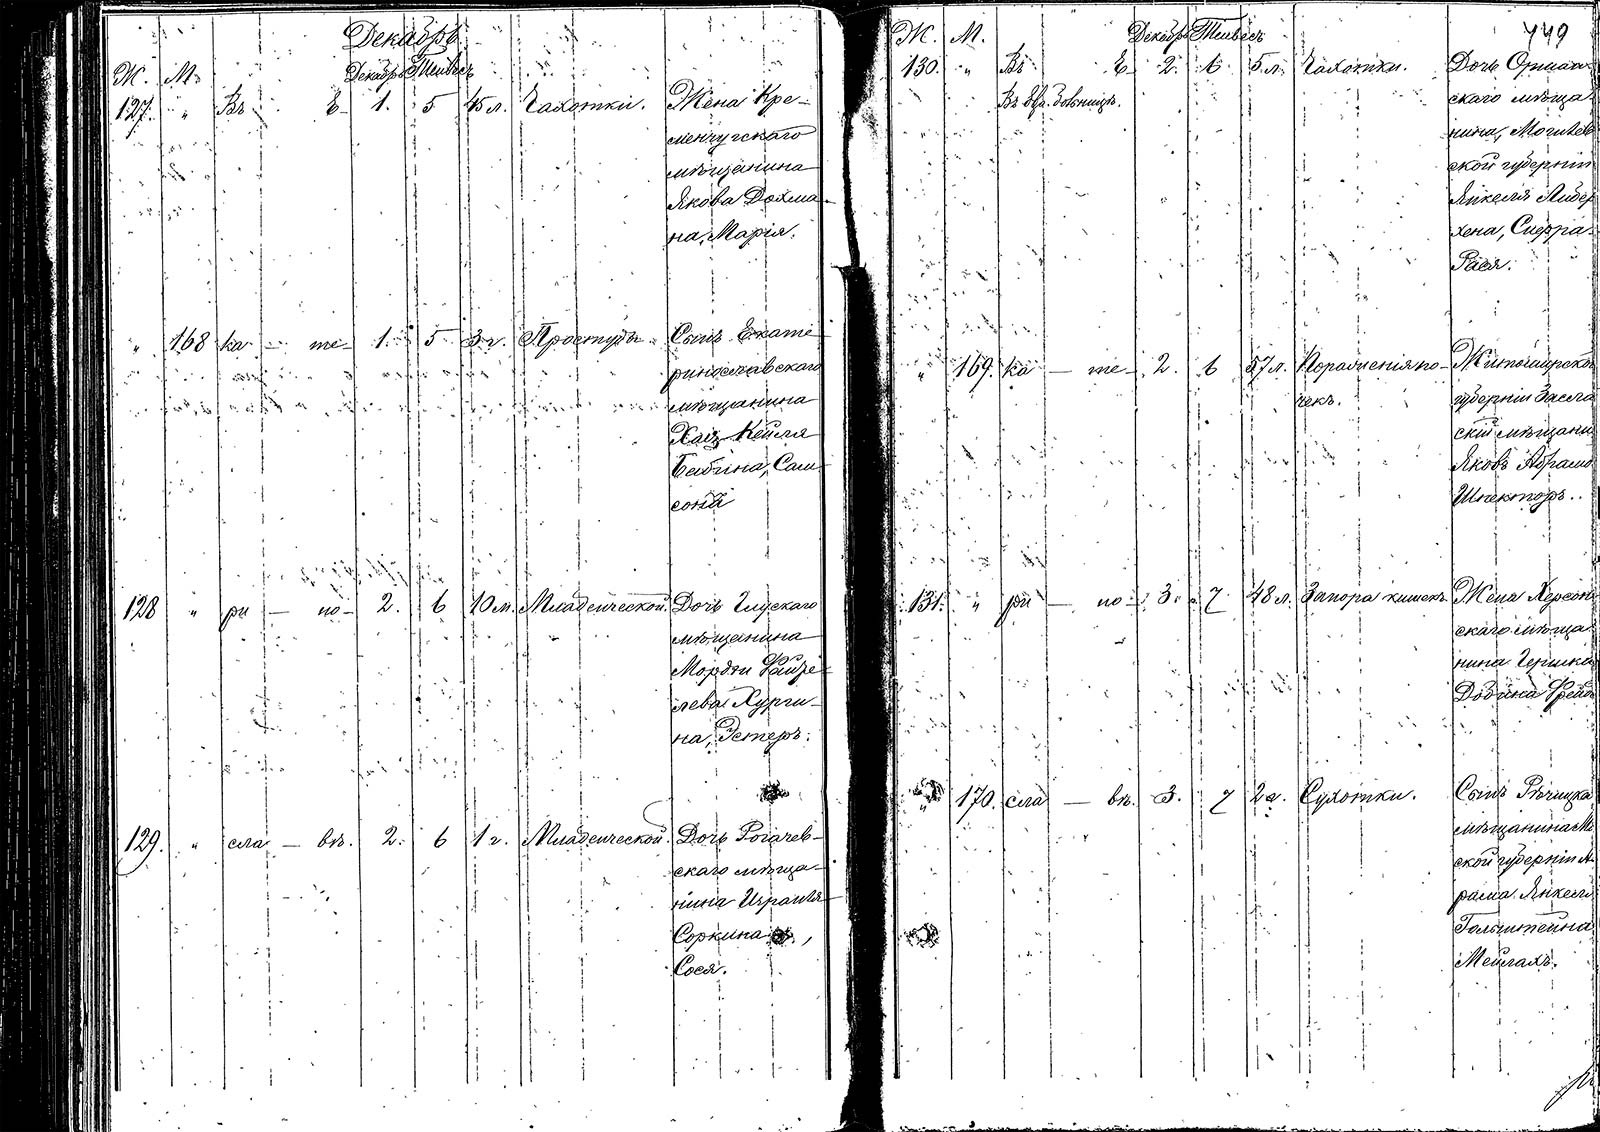 Декабрь
Ж. М. Декабрь Тейвесъ
127. " Въ Е 1. 5 45 л. Чахотки. Жена Кре-
менчугскаго
мѣщанина
Якова Дохма-
на, Марія.
" 168 ка — те- 1. 5 3 г. Простуды Сынъ Екате-
ринославскаго
мѣщанина
Хаиз Кейля
Бабина, Сам-
соній
128 " ри — но- 2. 6 10 м. Младенческой. Дочь Глускаго
мѣщанина
Мордхи Файзе-
лева Хурги-
на, Эстеръ.
129. " сла — вѣ. 2. 6 1 г. Младенческой. Дочь Рогачев-
скаго мѣща-
нина Израиля
Соркина ,
Сося.
449
Ж. М. Декабрь Тейвесъ
130. " Въ Е 2. 6 5 л. Чахотки. Дочь Оршан-
Въ Евр. больницѣ. скаго мѣща-
нина, Могилев
ской губерніи
Янкеля Либер
хена, Сифра-
Рася.
" 169. ка — те- 2. 6 57 л. Пораженія по- Житомирской
чекъ. губерніи Засла
скій мѣщани
Яковъ Абрамо
Шпекторъ.
131. " ри — но- 3. 7 48 л. Запора кишекъ Жена Херсон
скаго мѣща-
нина Гершка
Добина Фрейд
" 170. сла — вѣ. 3. 7 2 г. Сухотки. Сынъ Рѣчицка
мѣщанина Ми
ской губерніи А-
рама Янкеля
Гольштейна
Мейлахъ.